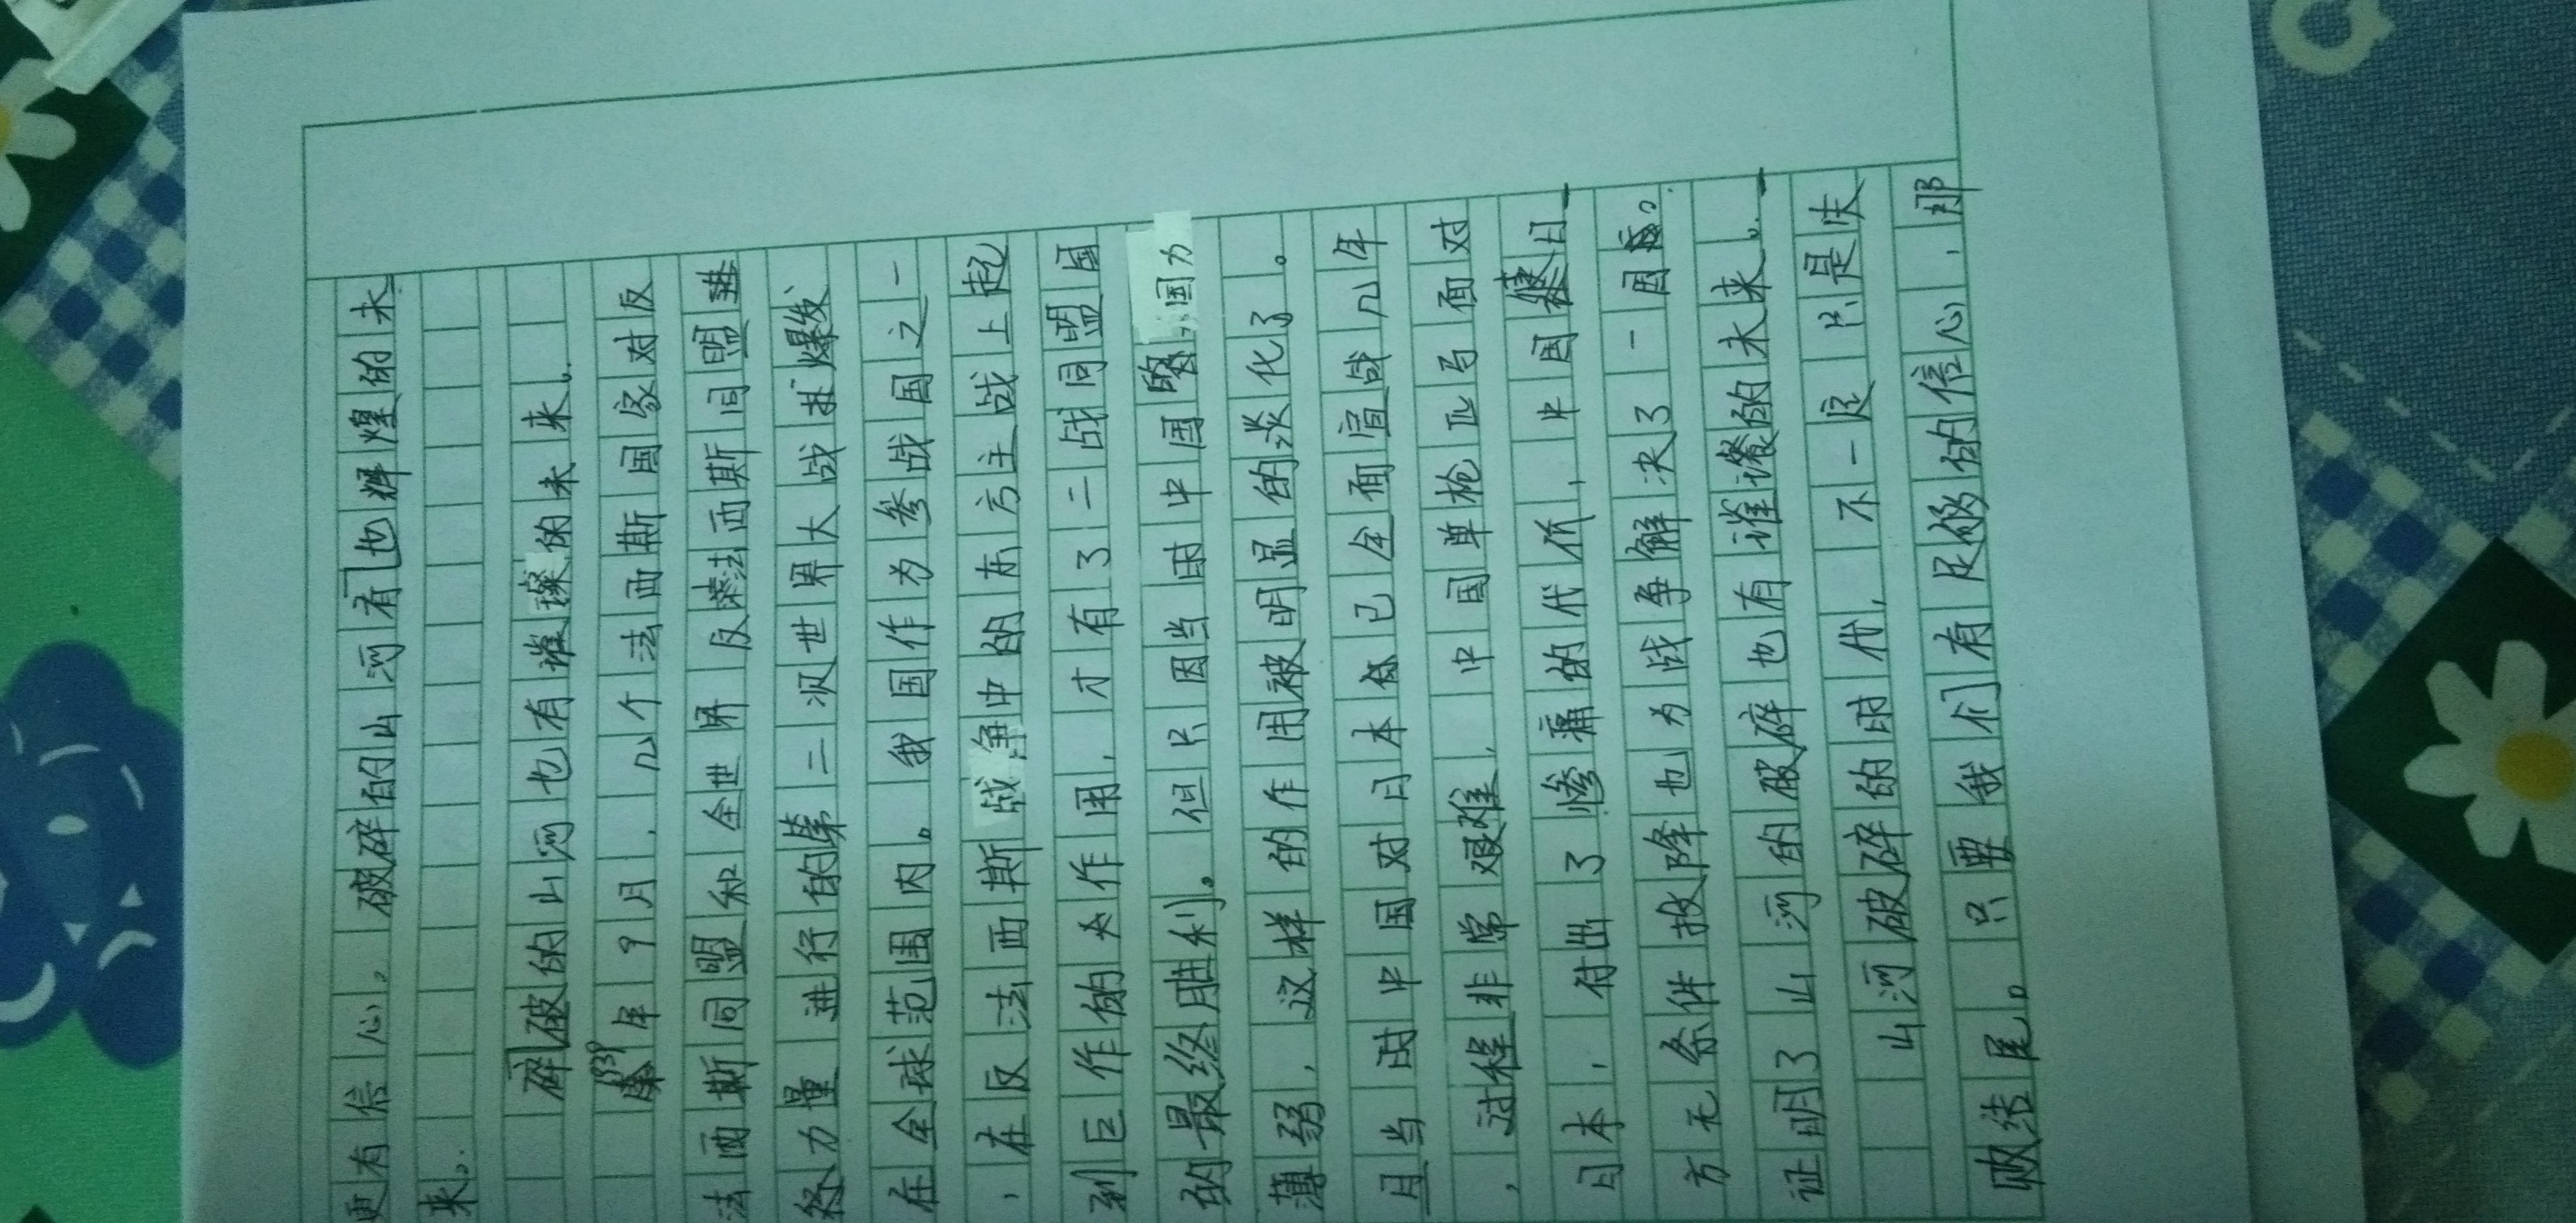 更有信心。破碎的山河有也辉煌的未
来。
碎破的山河也有璀璨的未来。
1939年9月，几个法西斯国家对反
法西斯同盟和全世界反法西斯同盟
力量进行的第二次世界大战爆发
在全球范围内。我国作为参战国之一
，在反法西斯战争中的东方主战上起
到巨作的作用，才有了二战同盟国
的最终胜利。但只因当时中国国力
薄弱，这样的作用被明显的淡化了。
且当时中国对日本已全面宣战几年
，过程非常艰难，中国单枪匹马面对
日本，付出了惨痛的代价，中国
方无条件投降也为战争解决了一因。
证明了山河的破碎也有璀璨的未来。
山河破碎的时代，不一定只是失
败结尾。只要我们有足够的信心，那